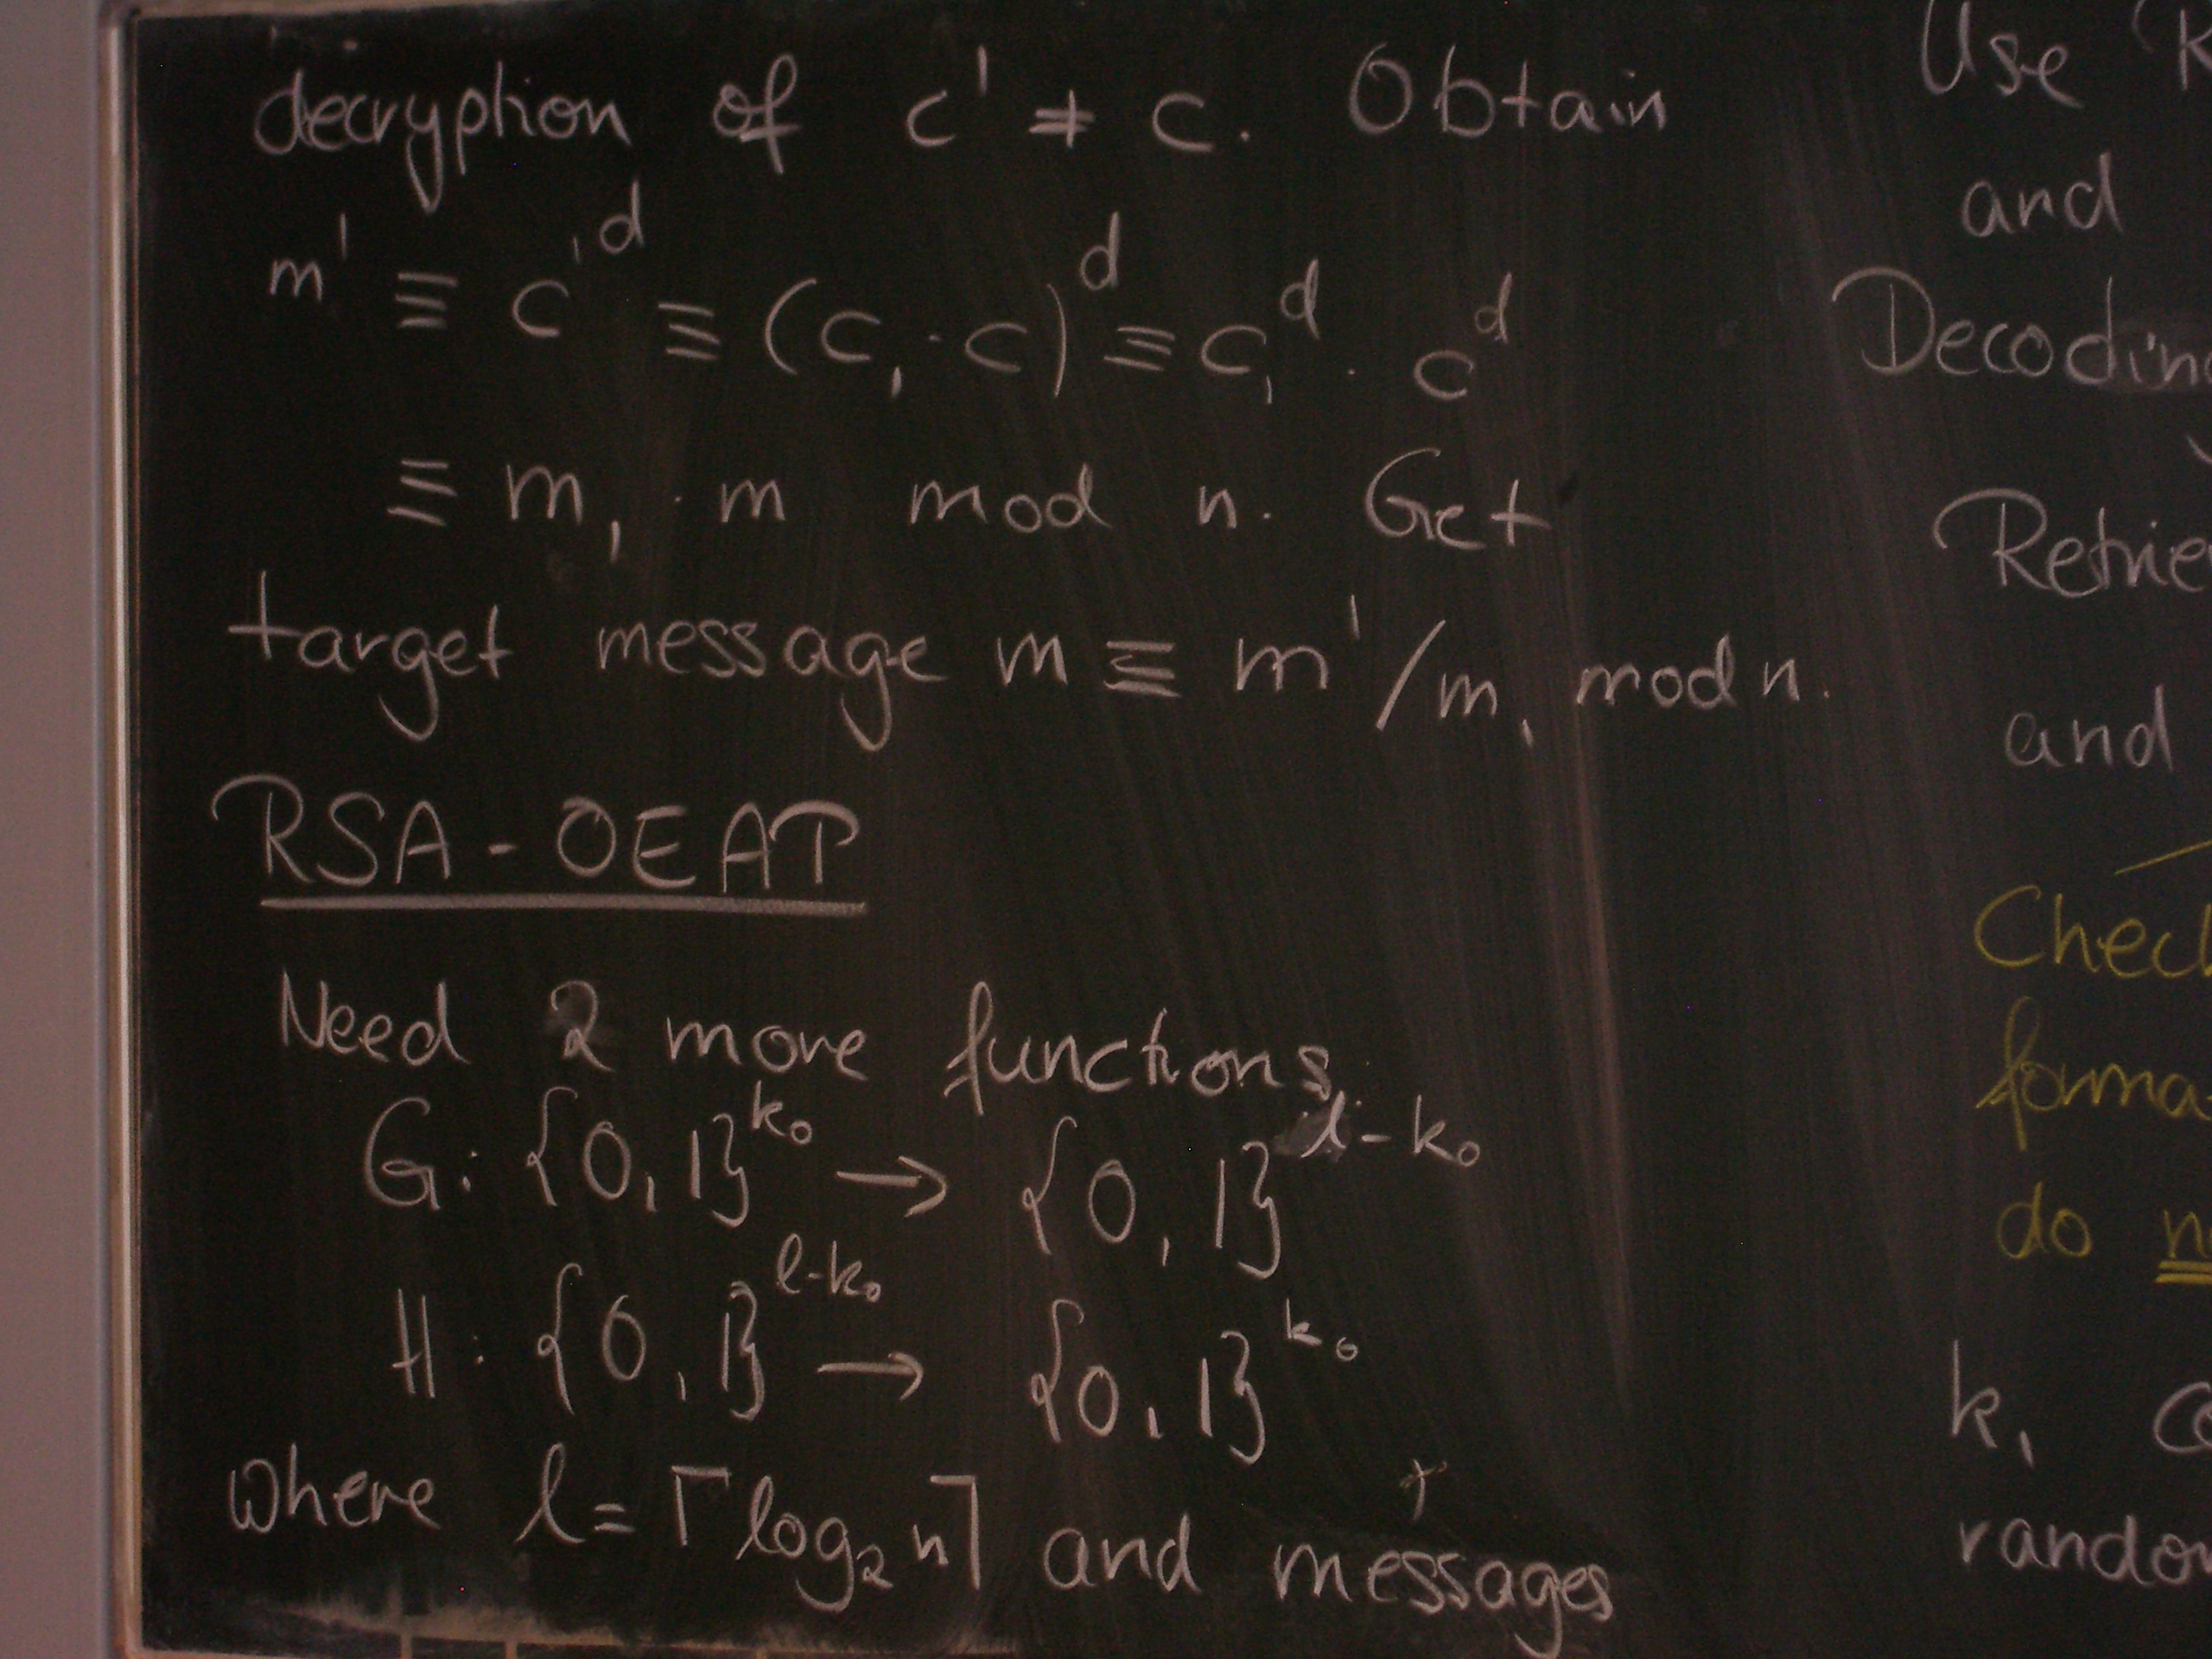 decryption of c' ≠ c. Obtain
m' ≡ c'^d ≡ (c₁·c)^d ≡ c₁^d · c^d
≡ m₁ · m mod n. Get
target message m ≡ m'/m₁ mod n.
RSA-OEAP
Need 2 more functions
G: {0,1}^k₀ → {0,1}^l-k₀
H: {0,1}^l-k₀ → {0,1}^k₀
where l = ⌈log₂ n⌉ and messages
Use
and
Decoding
and
do
k₁